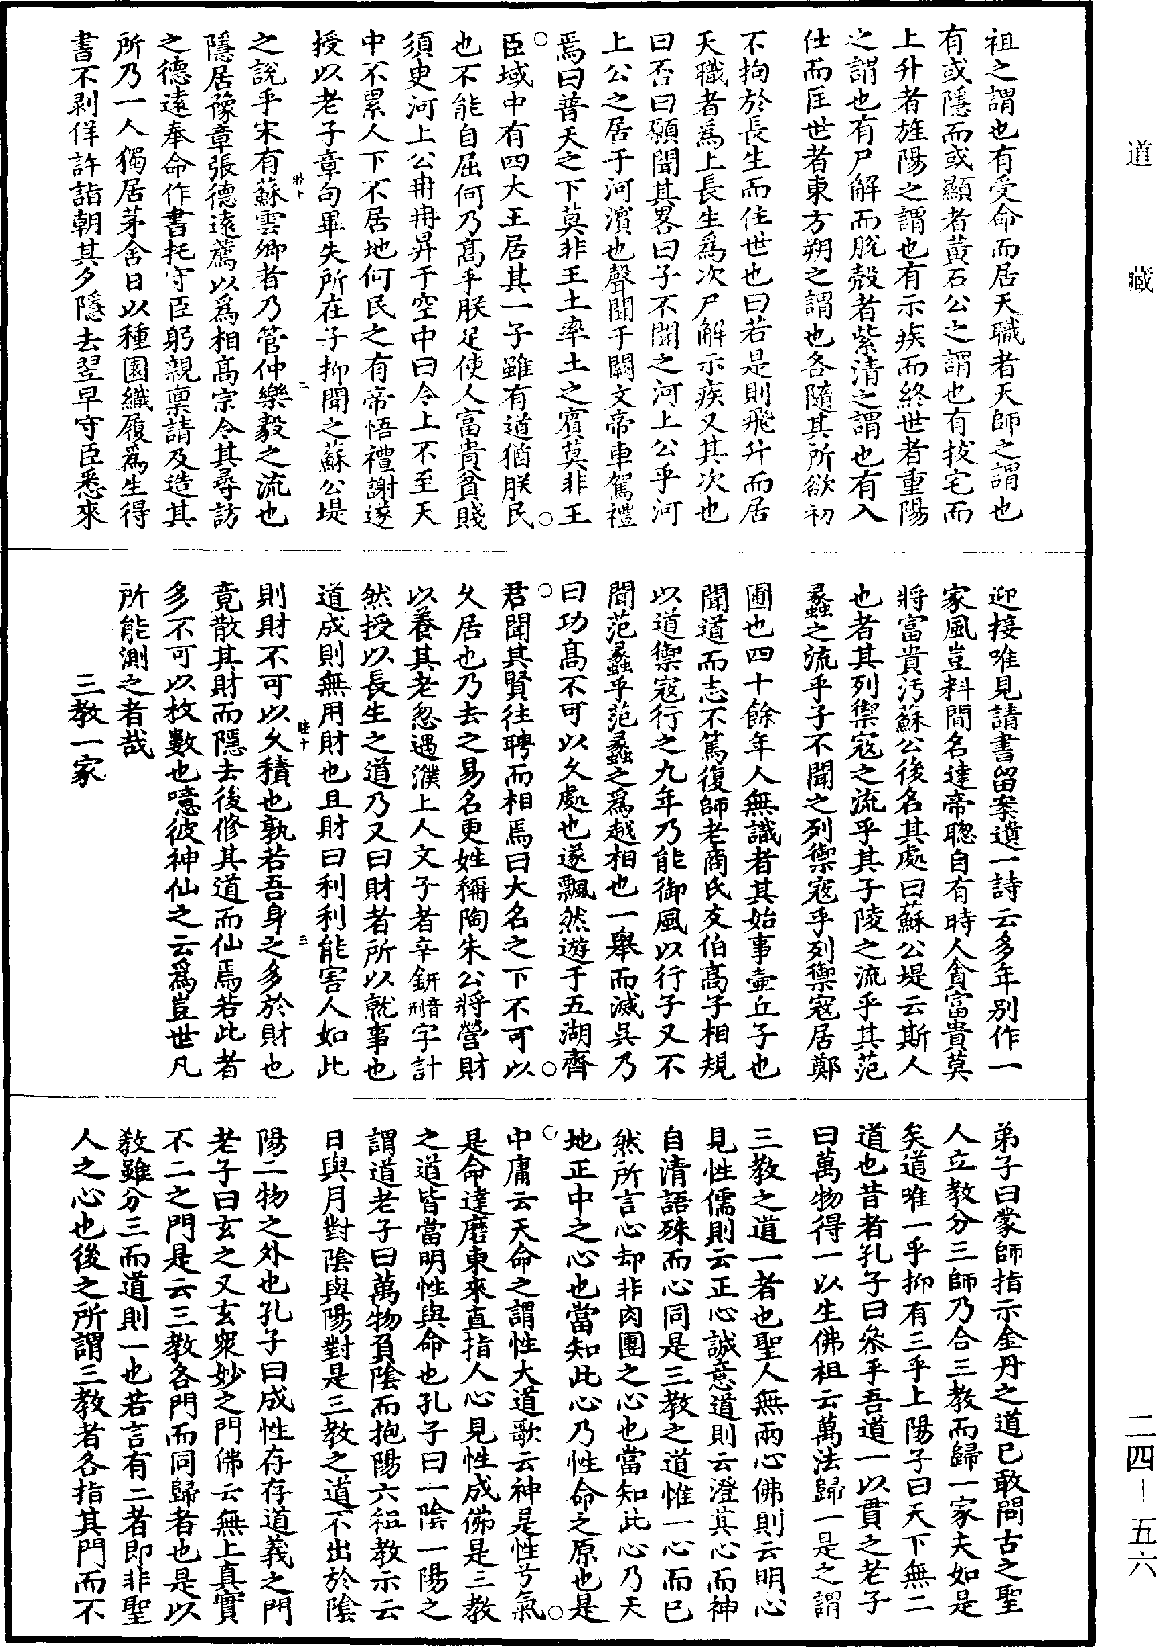 道藏
祖之謂也有受命而居天職者天師之謂也
有或隱而或顯者黃石公之謂也有拔宅而
上升者旌陽之謂也有示疾而終世者重陽
之謂也有尸解而脫殼者紫清之謂也有入
仕而匡世者東方朔之謂也各隨其所欲初
不拘於長生而住世也曰若是則飛升而居
天職者為上長生為次尸解示疾又其次也
曰否曰願聞其畧曰子不聞之河上公乎河
上公之居于河濱也聲聞于闕文帝車駕禮
焉曰普天之下莫非王土率土之賓莫非王
臣域中有四大王居其一子雖有道猶朕民
也不能自屈何乃高乎朕足使人富貴貧賤
須臾河上公冉冉昇于空中曰今上不至天
中不累人下不居地何民之有帝悟禮謝遂
授以老子章句畢失所在子抑聞之蘇公堤
之說乎宋有蘇雲卿者乃管仲樂毅之流也
隱居豫章張德遠薦以為相高宗令其尋訪
之德遠奉命作書托守臣躬親稟請及造其
所乃一人獨居茅舍日以種園織履為生得
書不剥佯許詣朝其夕隱去翌早守臣悉來
迎接唯見請書留案遺一詩云多年別作一
家風豈料間名達帝聰自有時人貪富貴莫
將富貴汚蘇公後名其處曰蘇公堤云斯人
也者其列禦寇之流乎其子陵之流乎其范
蠡之流乎子不聞之列禦寇乎列禦寇居鄭
圃也四十餘年人無識者其始事壷丘子也
聞道而志不篤復師老商氏友伯高子相規
以道禦寇行之九年乃能御風以行子又不
聞范蠡乎范蠡之為越相也一舉而滅吳乃
曰功高不可以久處也遂飄然遊于五湖齊
君聞其賢往聘而相焉曰大名之下不可以
久居也乃去之易名更姓稱陶朱公將營財
以養其老忽遇濮上人文子者辛鈃音刑字計
然授以長生之道乃又曰財者所以就事也
道成則無用財也且財曰利利能害人如此
則財不可以久積也孰若吾身之多於財也
竟散其財而隱去後修其道而仙焉若此者
多不可以枚數也噫彼神仙之云為豈世凡
所能測之者哉
三教一家
弟子曰蒙師指示金丹之道已敢問古之聖
人立教分三師乃合三教而歸一家夫如是
矣道唯一乎抑有三乎上陽子曰天下無二
道也昔者孔子曰參乎吾道一以貫之老子
曰萬物得一以生佛祖云萬法歸一是之謂
三教之道一者也聖人無兩心佛則云明心
見性儒則云正心誠意道則云澄其心而神
自清語殊而心同是三教之道惟一心而已
然所言心却非肉團之心也當知此心乃天
地正中之心也當知此心乃性命之原也是
中庸云天命之謂性大道歌云神是性兮氣
是命達磨東來直指人心見性成佛是三教
之道皆當明性與命也孔子曰一陰一陽之
謂道老子曰萬物負陰而抱陽六祖教示云
日與月對陰與陽對是三教之道不出於陰
陽二物之外也孔子曰成性存存道義之門
老子曰玄之又玄衆妙之門佛云無上真實
不二之門是云三教各門而同歸者也是以
教雖分三而道則一也若言有二者即非聖
人之心也後之所謂三教者各指其門而不
二四－五六